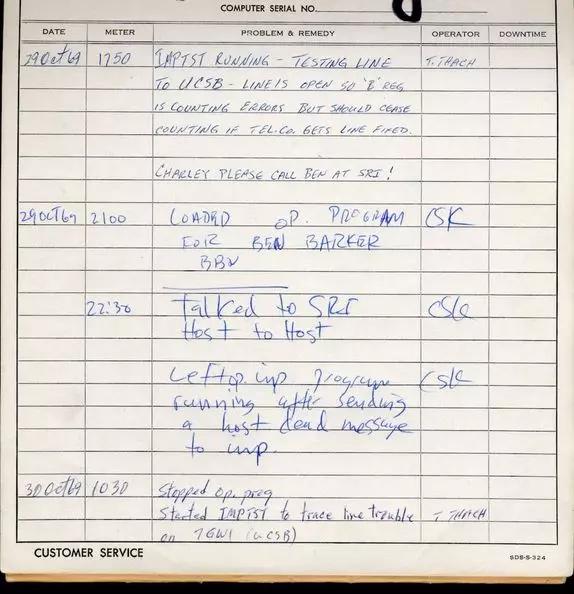 COMPUTER SERIAL NO.
DATE METER PROBLEM & REMEDY OPERATOR DOWNTIME
29Oct69 1750 IMPTST RUNNING - TESTING LINE T. THACH
TO UCSB - LINE IS OPEN SO 'B' REG
IS COUNTING ERRORS BUT SHOULD CEASE
COUNTING IF TEL.CO. GETS LINE FIXED.
CHARLEY PLEASE CALL BEN AT SRI!
29OCT69 2100 LOADED OP. PROGRAM CSK
FOR BEN BARKER
BBN
22:30 Talked to SRI CSK
Host to Host
Left op. imp program CSK
running after sending
a host dead message
to imp.
30Oct69 1030 Stopped op. prog
Started IMPTST to trace line trouble T THACH
on (UCSB)
CUSTOMER SERVICE SDS-S-324